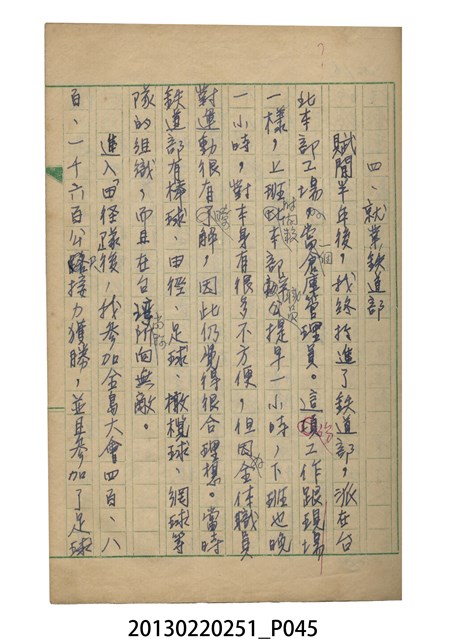 四、就業鉄道部
賦閒半年後，我終於進了鉄道部，派在台
北本部工場，當一個倉庫管理員。這份工作跟現場
一樣，上班時間較本部職員提早一小時，下班也晚
一小時，對本身有很多不方便，但因全体職員
對運動很有瞭解，因此仍覺得很合理想。當時
鉄道部有棒球、田径、足球、橄欖球、網球等
隊的組織，而且在台灣所向無敵。
進入田径隊後，我參加全島大會四百、八
百、一千六百公尺接力獲勝，並且參加了足球
20130220251_P045